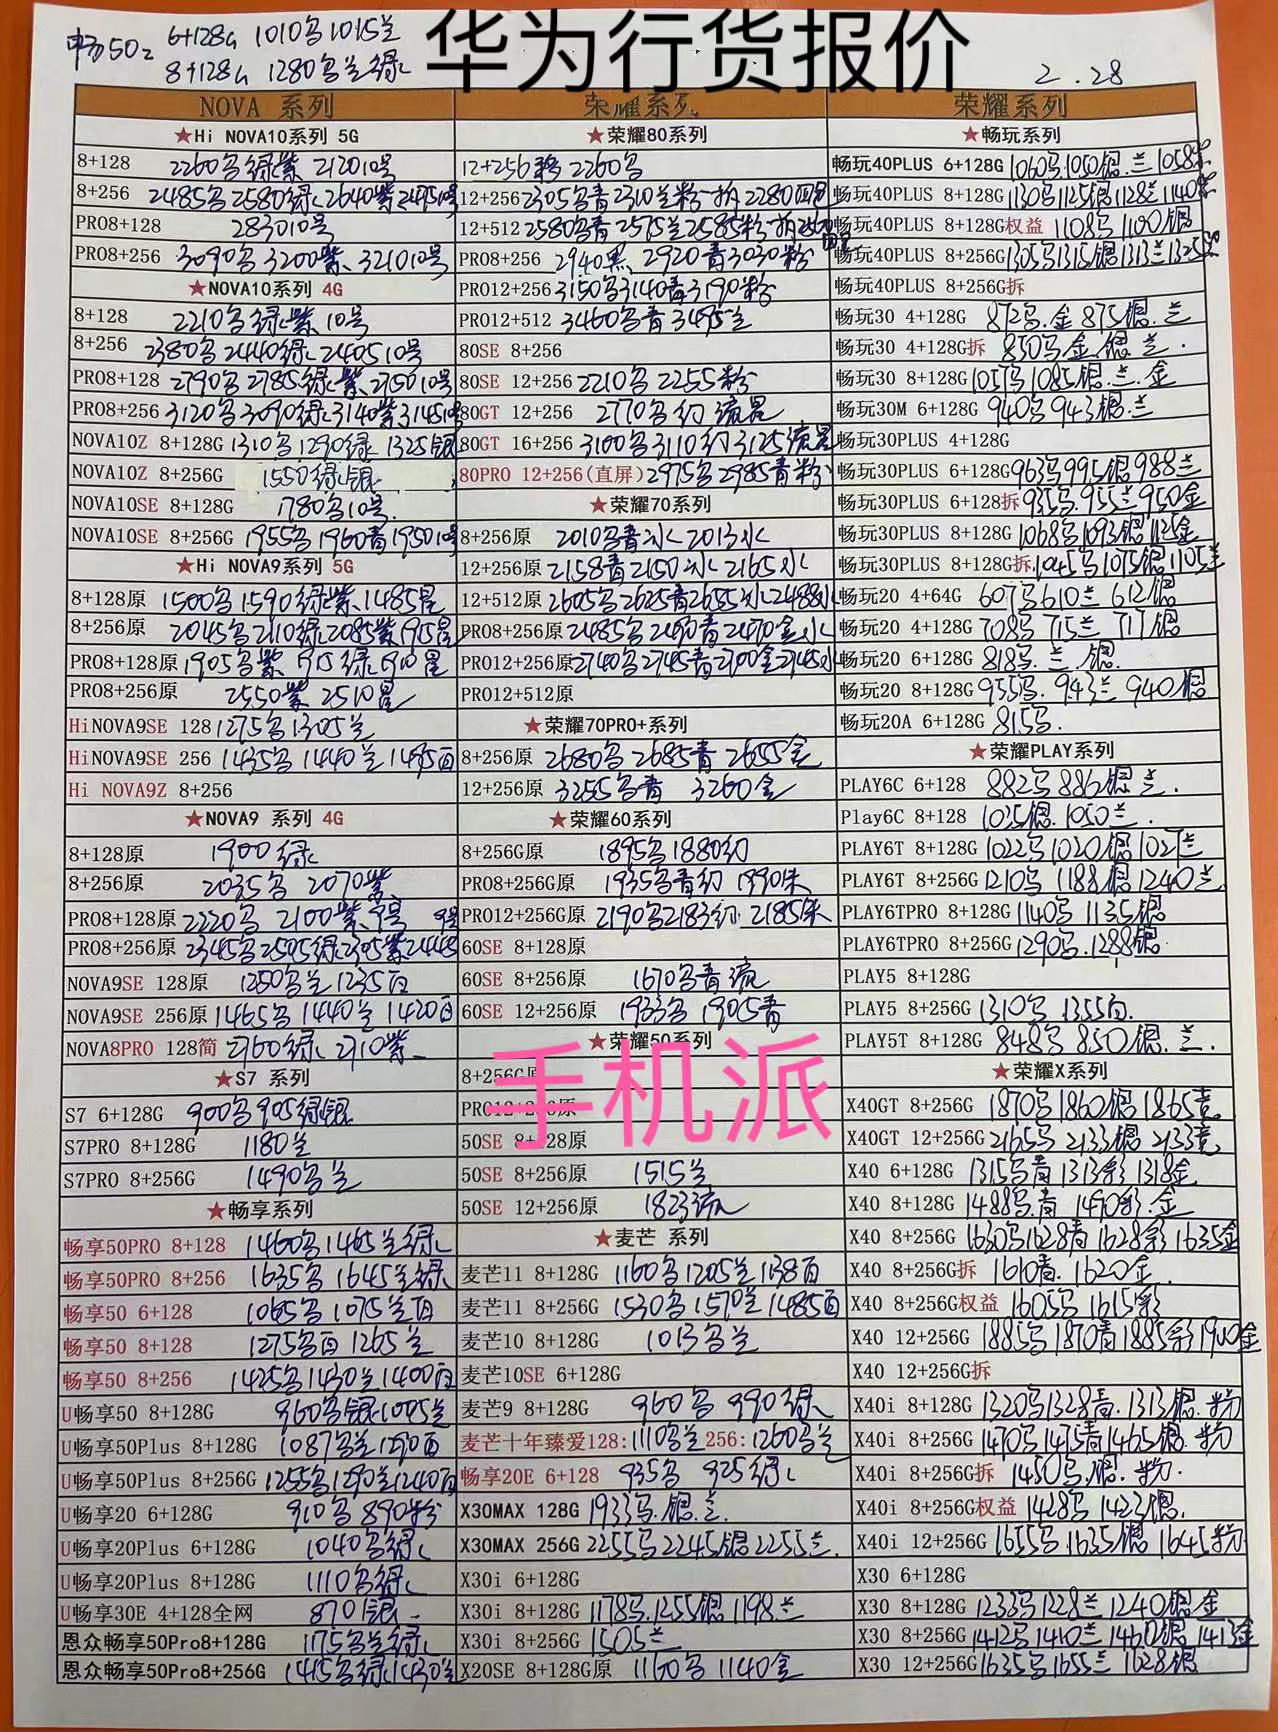 畅50z 6+128G 1010乌1015兰
8+128G 1280乌兰绿
华为行货报价
2.28
NOVA 系列
★Hi NOVA10系列 5G
8+128 2260乌绿紫 212010号
8+256 2485乌2580绿2640紫249510号
PRO8+128 283010号
PRO8+256 3090乌 3200紫 321010号
★NOVA10系列 4G
8+128 2210乌绿紫10号
8+256 2380乌2440绿240510号
PRO8+128 2790乌2785绿紫275010号
PRO8+256 3120乌3090绿3140紫314510号
NOVA10Z 8+128G 1310乌1290绿 1325银
NOVA10Z 8+256G 1550绿银
NOVA10SE 8+128G 1780乌10号
NOVA10SE 8+256G 1955乌1960青195010号
★Hi NOVA9系列 5G
8+128原 1500乌1590绿紫1485星
8+256原 2045乌2110绿2085紫1915星
PRO8+128原 1905乌紫 1915绿 1910星
PRO8+256原 2550紫 2510星
HiNOVA9SE 128 1275乌1305兰
HiNOVA9SE 256 1435乌1440兰1495白
Hi NOVA9Z 8+256
★NOVA9 系列 4G
8+128原 1900绿
8+256原 2035乌 2070紫
PRO8+128原 2220乌 2100紫9号
PRO8+256原 2345乌2505绿2305紫2448 9号
NOVA9SE 128原 1250乌兰1235白
NOVA9SE 256原 1465乌1440兰1420白
NOVA8PRO 128简 2760绿 2710紫
★S7 系列
S7 6+128G 900乌905绿银
S7PRO 8+128G 1180兰
S7PRO 8+256G 1490乌兰
★畅享系列
畅享50PRO 8+128 1460乌1465兰绿
畅享50PRO 8+256 1635乌1645兰绿
畅享50 6+128 1065乌1075兰白
畅享50 8+128 1275乌白1265兰
畅享50 8+256 1425乌1430兰1400白
U畅享50 8+128G 960乌银1005兰
U畅享50Plus 8+128G 1087乌兰1290白
U畅享50Plus 8+256G 1255乌1290兰1240白
U畅享20 6+128G 910乌890粉
U畅享20Plus 6+128G 1040乌绿
U畅享20Plus 8+128G 1110乌绿
U畅享30E 4+128全网 870银
恩众畅享50Pro8+128G 1175乌兰绿
恩众畅享50Pro8+256G 1415乌绿1430兰
荣耀系列
★荣耀80系列
12+256移 2260乌
12+256 2305乌青2310兰粉一拍2280
12+512 2580乌青2575兰2585粉一拍2560
PRO8+256 2940黑 2920青3030粉
PRO12+256 3150乌3140青3190粉
PRO12+512 3460乌青3495兰
80SE 8+256
80SE 12+256 2210乌2255粉
80GT 12+256 2770乌幻 流星
80GT 16+256 3100乌3110幻3125流星
80PRO 12+256(直屏) 2975乌2985青粉
★荣耀70系列
8+256原 2010乌青冰2013水
12+256原 2158青2150冰2165水
12+512原 2605乌2625青2655冰2488水
PRO8+256原 2485乌2490青2470金水
PRO12+256原 2740乌2745青2700金2745水
PRO12+512原
★荣耀70PRO+系列
8+256原 2680乌2685青2655金
12+256原 3255乌青 3260金
★荣耀60系列
8+256G原 1895乌1880幻
PRO8+256G原 1935乌青幻 1990朱
PRO12+256G原 2190乌2183幻 2185朱
60SE 8+128原
60SE 8+256原 1670乌青流
60SE 12+256原 1903乌 1905青
★荣耀50系列
8+256G原
PRO12+256原
50SE 8+128原
50SE 8+256原 1515兰
50SE 12+256原 1823流
手机派
★麦芒 系列
麦芒11 8+128G 1160乌1205兰1138白
麦芒11 8+256G 1530乌1570兰1485白
麦芒10 8+128G 1013乌兰
麦芒10SE 6+128G
麦芒9 8+128G 960乌 990绿
麦芒十年臻爱128:1110乌兰256:1260乌兰
畅享20E 6+128 935乌 925绿
X30MAX 128G 1933乌.银.兰.
X30MAX 256G 2255乌2245银2255兰.
X30i 6+128G
X30i 8+128G 1178乌.1255银1198兰
X30i 8+256G 1505兰
X20SE 8+128G原 1160乌 1140金
荣耀系列
★畅玩系列
畅玩40PLUS 6+128G 1060乌1050银.兰1058
畅玩40PLUS 8+128G 1130乌1125银1128兰1140
畅玩40PLUS 8+128G权益 1108乌 1100银
畅玩40PLUS 8+256G 1305乌1315银1313兰1325
畅玩40PLUS 8+256G拆
畅玩30 4+128G 872乌.金875银.兰
畅玩30 4+128G拆 850乌金.银 兰.
畅玩30 8+128G 1057乌1085银.兰.金
畅玩30M 6+128G 940乌943银.兰
畅玩30PLUS 4+128G
畅玩30PLUS 6+128G 963乌995银988兰
畅玩30PLUS 6+128拆 935乌.955兰950金
畅玩30PLUS 8+128G 1068乌1093银1125金
畅玩30PLUS 8+128G拆 1045乌1075银1105兰
畅玩20 4+64G 607乌610兰 612银
畅玩20 4+128G 708乌 715兰 717银
畅玩20 6+128G 818乌.兰.银.
畅玩20 8+128G 955乌.943兰 940银
畅玩20A 6+128G 815乌.
★荣耀PLAY系列
PLAY6C 6+128 882乌886银兰.
Play6C 8+128 1035银.1050兰.
PLAY6T 8+128G 1022乌1020银1027兰
PLAY6T 8+256G 1210乌 1188银1240兰
PLAY6TPRO 8+128G 1140乌 1135银
PLAY6TPRO 8+256G 1290乌.1288银.
PLAY5 8+128G
PLAY5 8+256G 1310乌 1355白.
PLAY5T 8+128G 848乌 850银.兰.
★荣耀X系列
X40GT 8+256G 1870乌1860银1865竞
X40GT 12+256G 2165乌 2133银2133竞
X40 6+128G 1315乌青1313彩1318金
X40 8+128G 1488乌.青 1490彩.金
X40 8+256G 1630乌1628青1628彩1635金
X40 8+256G拆 1610青.1620金.
X40 8+256G权益 1605乌 1615彩
X40 12+256G 1885乌1870青1885彩1900金
X40 12+256G拆
X40i 8+128G 1320乌1328青.1313银.粉
X40i 8+256G 1470乌1475青1465银.粉
X40i 8+256G拆 1450乌.银.粉.
X40i 8+256G权益 1428乌1423银.
X40i 12+256G 1655乌.1635银 1645粉
X30 6+128G
X30 8+128G 1233乌1228兰 1240银金
X30 8+256G 1412乌1410兰1460银1413金
X30 12+256G 1635乌1655兰 1628银